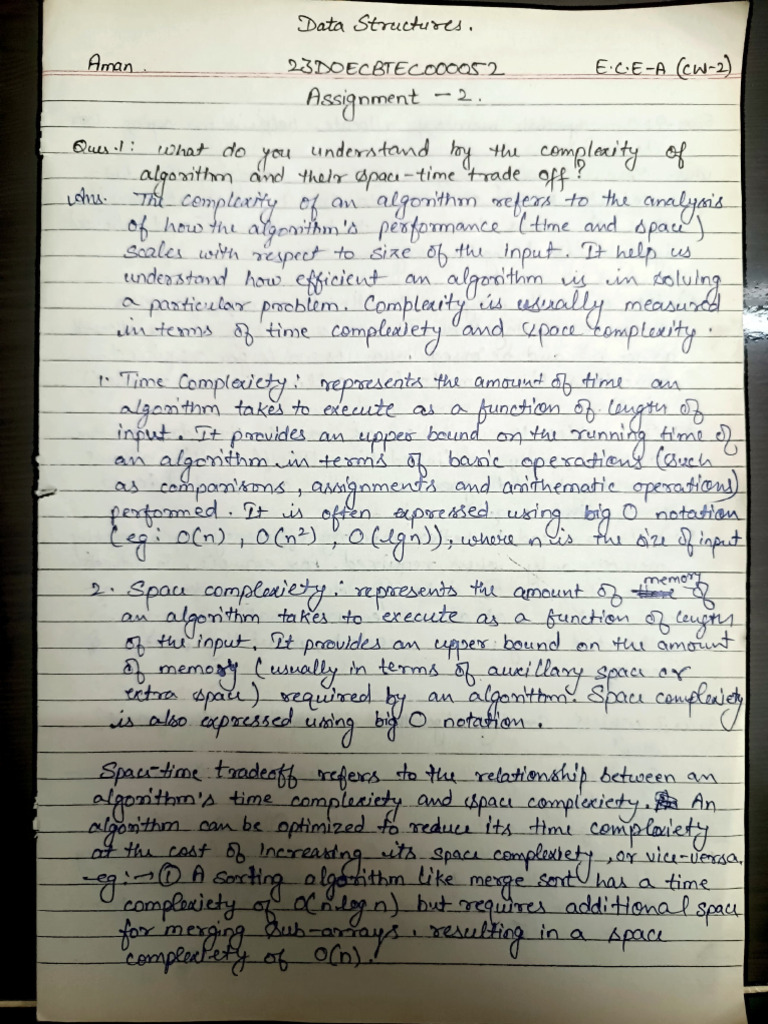 Data Structures.
Aman. 23DOECBTEC000052 E.C.E-A (CW-2)
Assignment - 2.
Ques.1: What do you understand by the complexity of
algorithm and their space-time trade off?
Ans. The complexity of an algorithm refers to the analysis
of how the algorithm's performance (time and space)
scales with respect to size of the input. It help us
understand how efficient an algorithm is in solving
a particular problem. Complexity is usually measured
in terms of time complexiety and space complexity.
1. Time Complexiety: represents the amount of time an
algorithm takes to execute as a function of length of
input. It provides an upper bound on the running time of
an algorithm in terms of basic operations (such
as comparisons, assignments and arithematic operations)
performed. It is often expressed using big O notation
(eg: O(n), O(n²), O(lgn)), where n is the size of input
2. Space complexiety: represents the amount of memory of
an algorithm takes to execute as a function of length
of the input. It provides an upper bound on the amount
of memory (usually in terms of auxillary space or
extra space) required by an algorithm. Space complexiety
is also expressed using big O notation.
Space-time tradeoff refers to the relationship between an
algorithm's time complexiety and space complexiety. An
algorithm can be optimized to reduce its time complexiety
at the cost of increasing its space complexiety, or vice-versa.
eg:→ ① A sorting algorithm like merge sort has a time
complexiety of O(n.logn) but requires additional space
for merging sub-arrays, resulting in a space
complexiety of O(n).